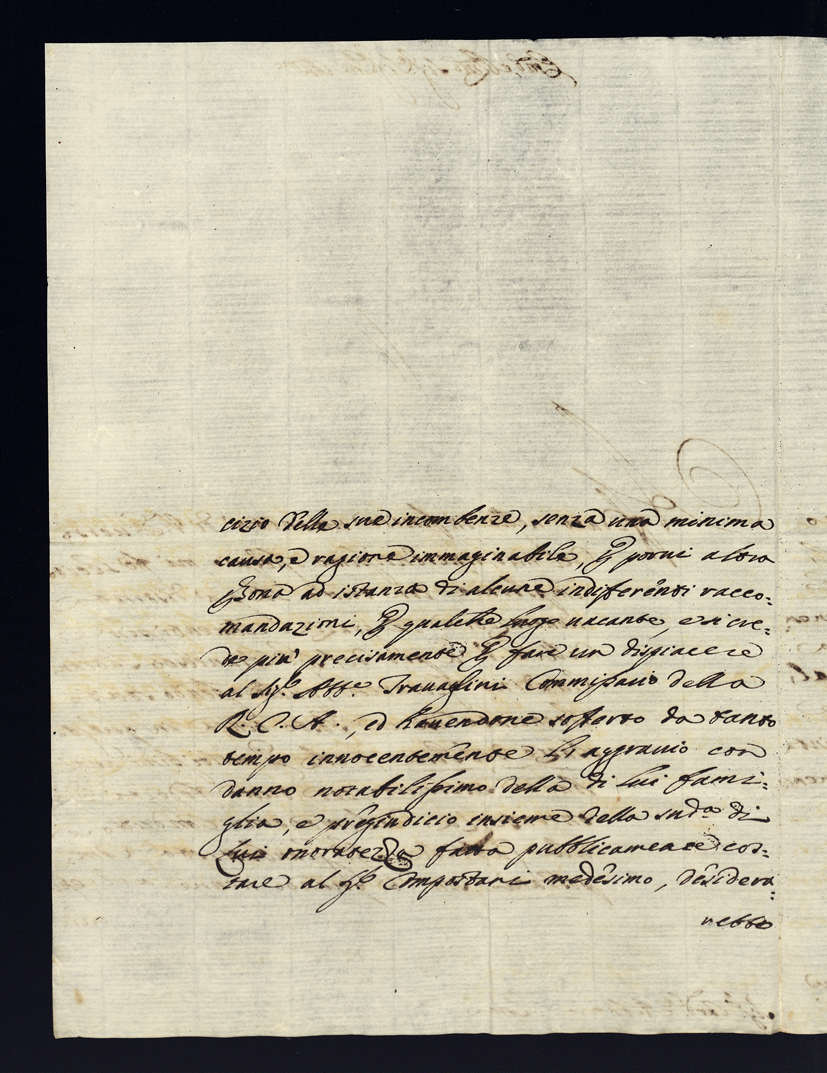 cizio delle sue incombenze, senza una minima
causa, e ragione immaginabile, p porvi altra
Psona ad istanza di alcune indifferenti racco=
mandazioni, p qualche luogo vacante, e si cre=
de più precisamente p fare un dispiacere
al Sig.e Abb.e Travaglini Commissario della
R. C. A., ed havendone sofferto da tanto
tempo innocentemente l'aggravio con
danno notabilissimo della di lui fami=
glia, e pregiudicio insieme della sud.a di
Lui onoratezza fatta pubblicamente cos=
tare al Sig.e Compostari medesimo, desidera=
rebbe